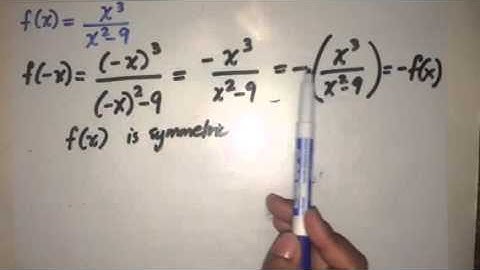 f(x) = x³/(x²-9)
f(-x) = (-x)³/((-x)²-9) = -x³/(x²-9) = -(x³/(x²-9)) = -f(x)
f(x) is symmetric